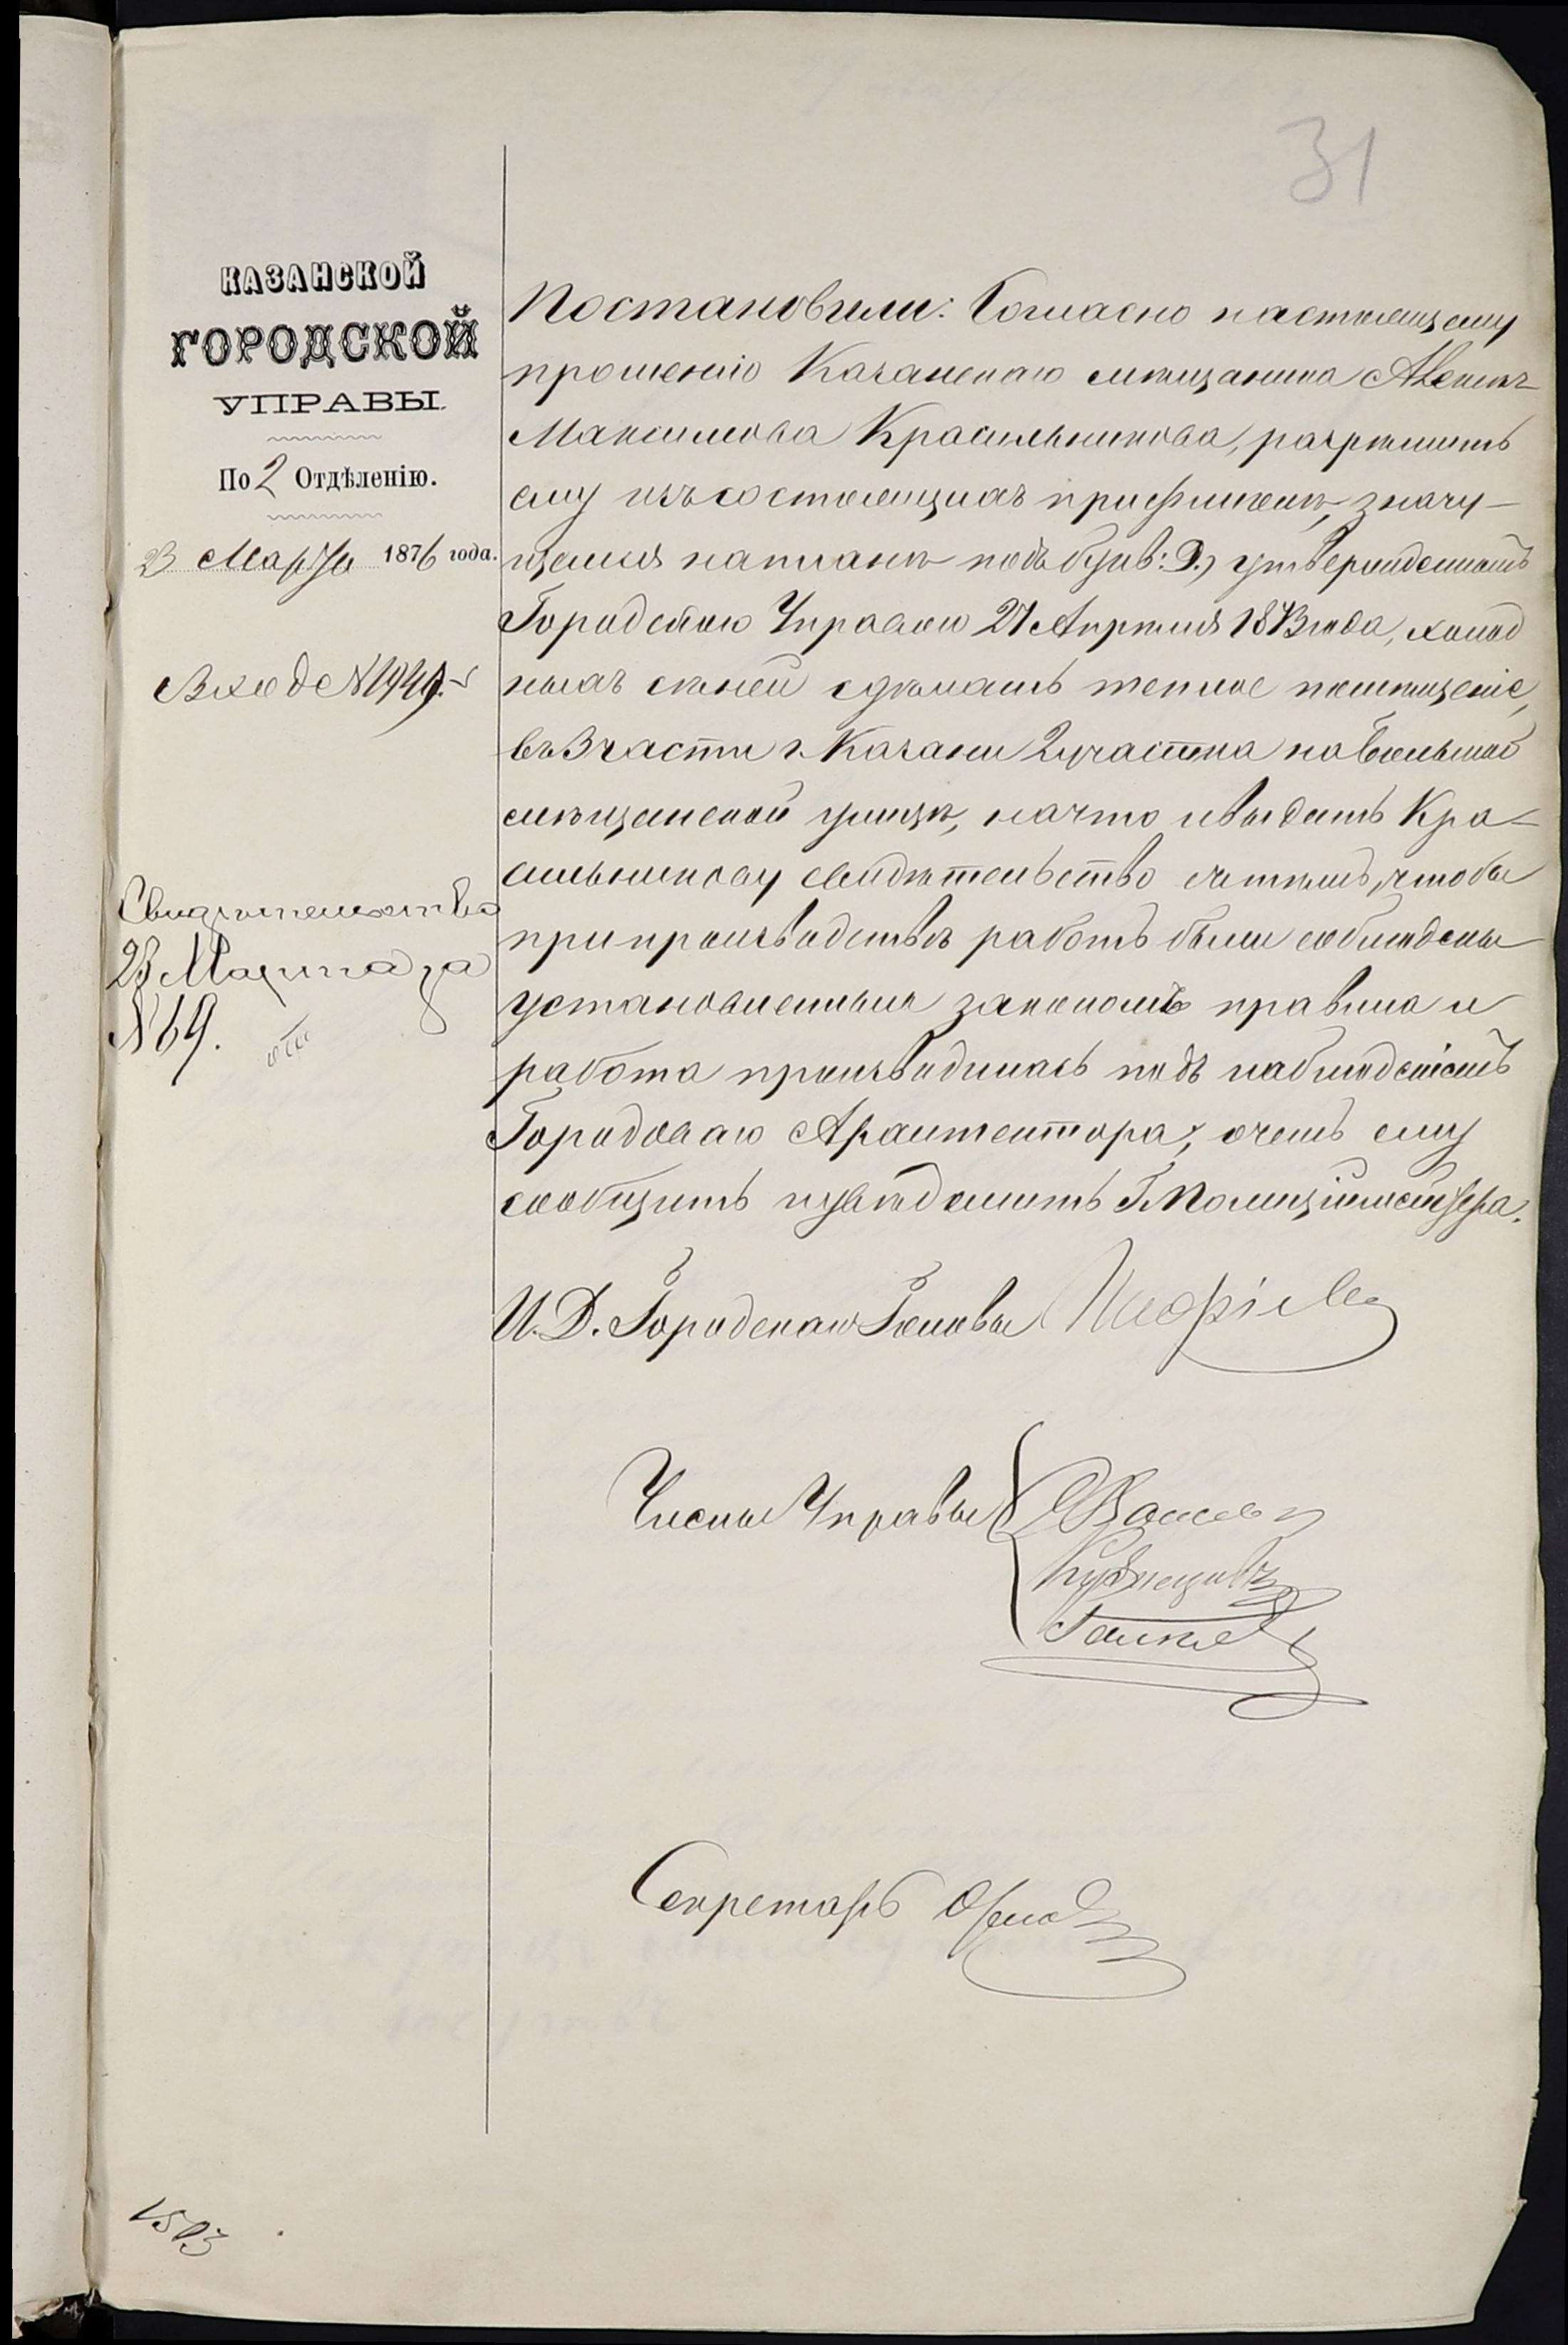 31
КАЗАНСКОЙ
ГОРОДСКОЙ
УПРАВЫ.
По 2 Отдѣленію.
23 Марта 1876 года.
Вход № 1949.
Свидѣтельство
23 Марта за
№ 69.
Постановили: Согласно настоящему
прошенію Казанскаго мѣщанина
Максимова Красильникова, разрѣшить
ему изъ состоящихъ при флигелѣ, значу-
щемся на планѣ подъ букв: Д., утвержденномъ
Городскою Управою 27 Апрѣля 1873 года, холод
ныхъ сѣней сдѣлать теплое помѣщеніе,
въ 3 части г. Казани 2 участка на Большой
мѣщанской улицѣ, на что и выдать Кра-
сильникову свидѣтельство съ тѣмъ, чтобы
при производствѣ работъ были соблюдены
установленныя закономъ правила и
работа производилась подъ наблюденіемъ
Городоваго Архитектора, о чемъ ему
сообщить и увѣдомить Г. Полиціймейстера.
И. Д. Городскаго Головы
Члены Управы
Кузнецовъ
Секретарь
1503